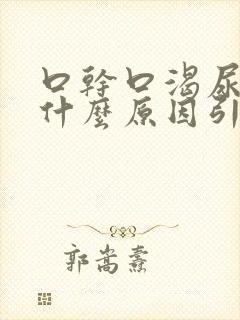 口幹口渴尿
什麼原因引
郭嵩燾